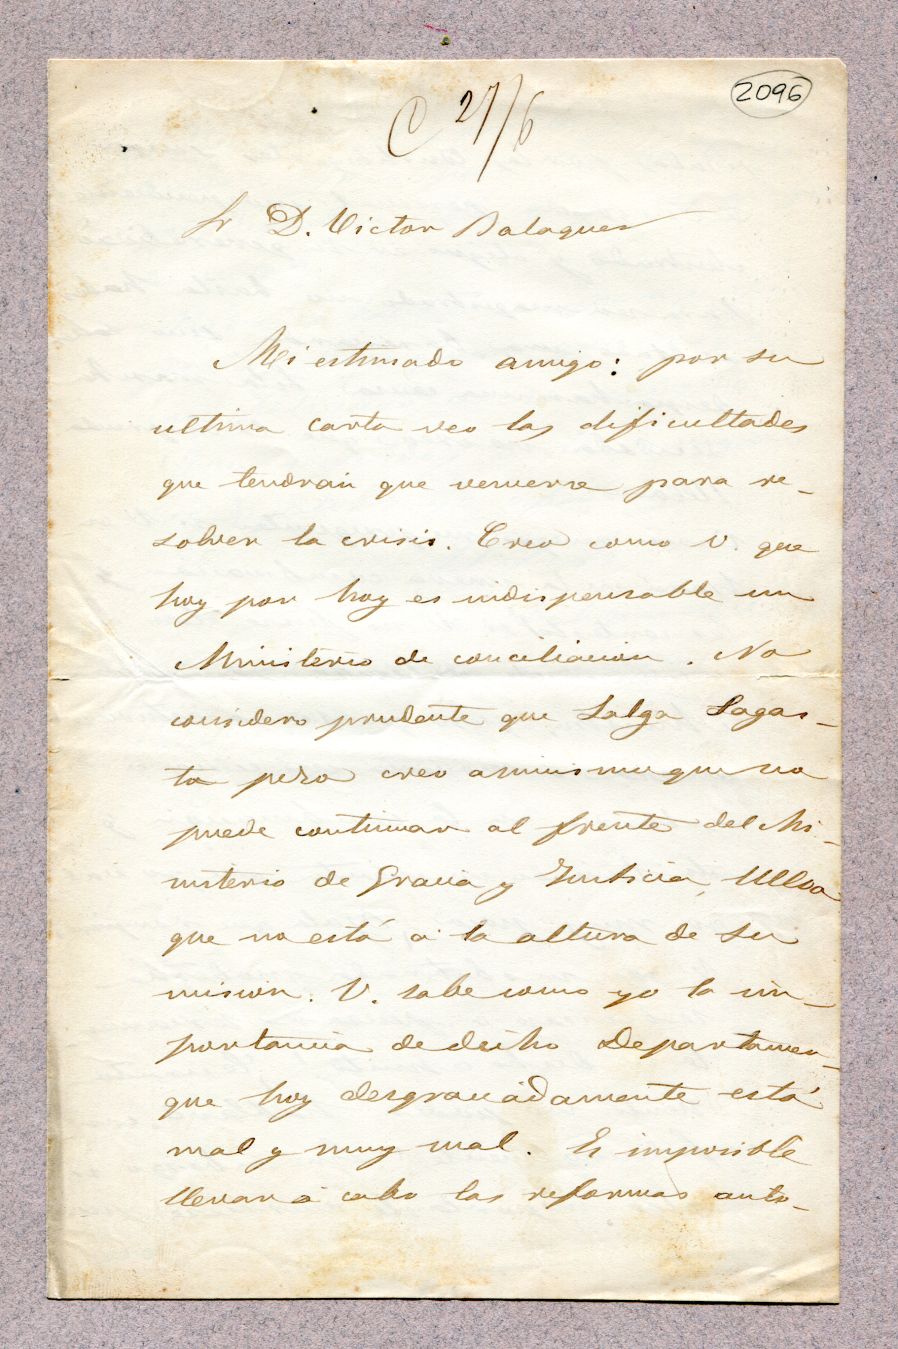 2096
C 27/6
Sr D. Victor Balaguer
Mi estimado amigo: por su
ultima carta veo las dificultades
que tendrán que vencerse para re-
solver la crisis. Creo como V. que
hoy por hoy es indispensable un
Ministerio de conciliacion. No
considero prudente que Salga Sagas-
ta pero creo asimismo que no
puede continuar al frente del Mi-
nisterio de Gracia y Justicia, Ulloa
que no está a la altura de su
mision. V. sabe como yo la im-
portancia de dicho Departamen-
que hoy desgraciadamente está
mal y muy mal. Es imposible
llevar a cabo las reformas auto-